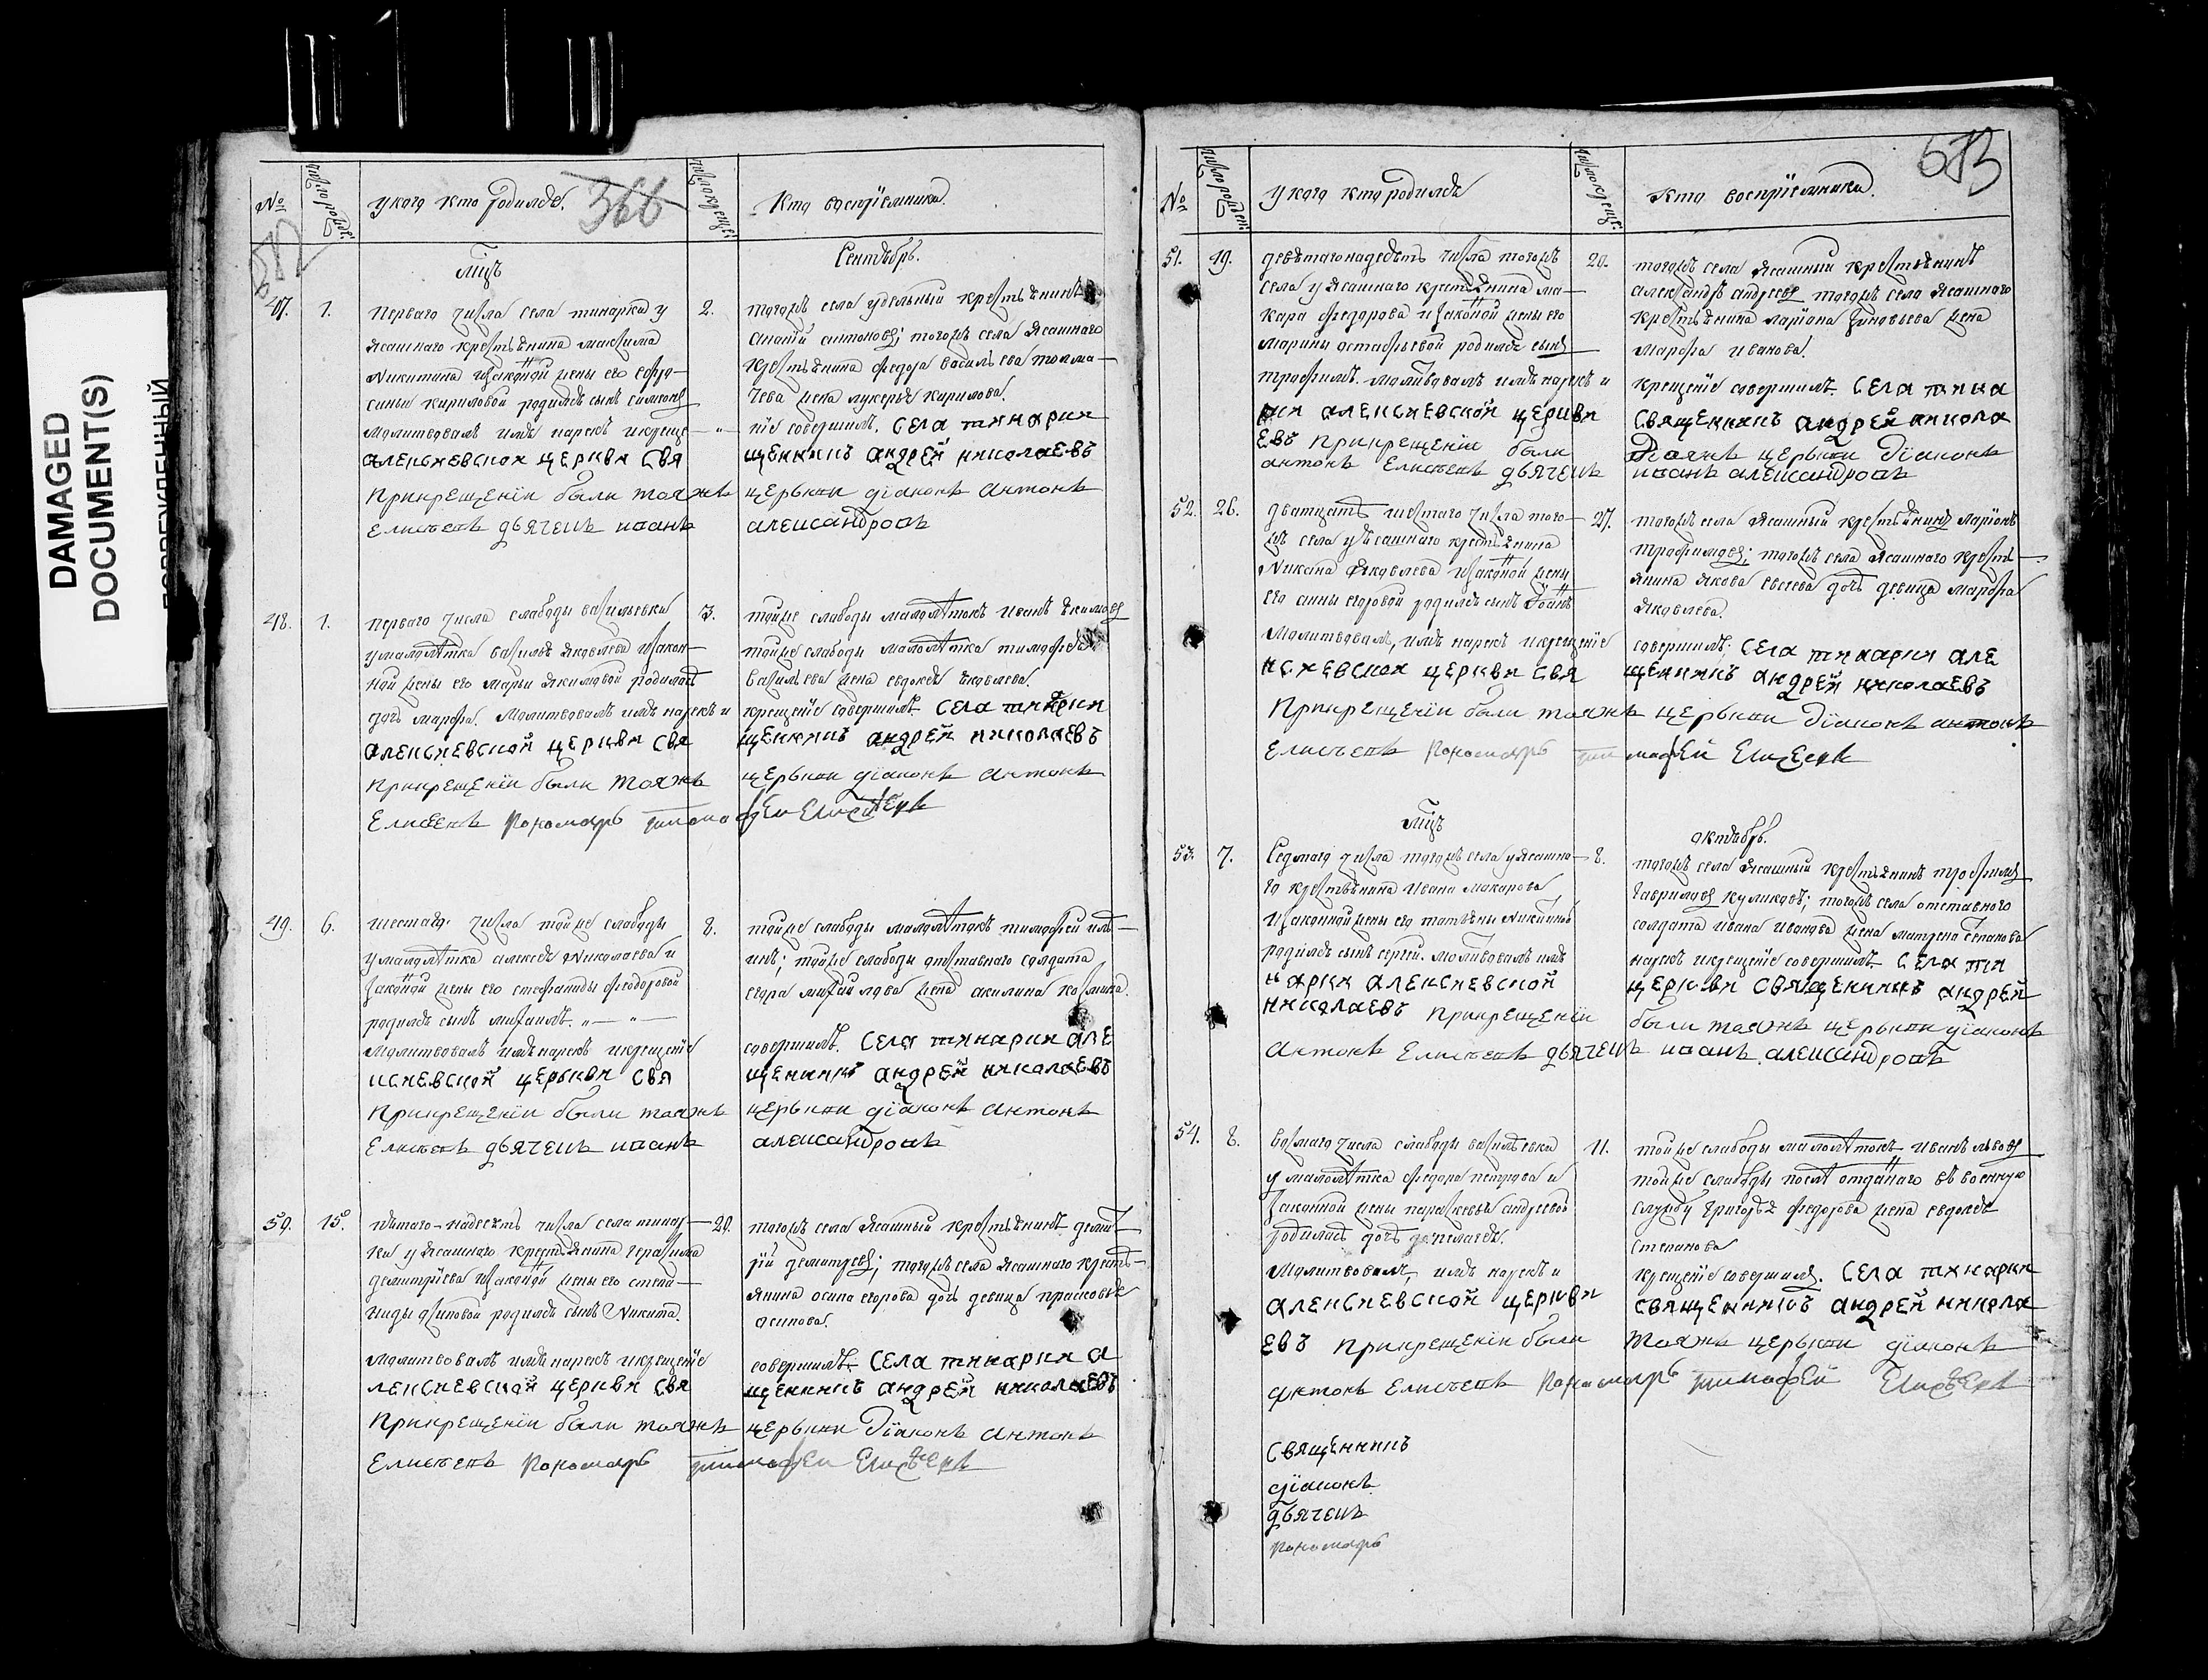 DAMAGED
DOCUMENT(S)
ПОВРЕЖДЕННЫЙ
№
число рожде:
у кого кто родился.
366
число креще:
Кто восприемники.
572
мцъ
Сентябрь.
47.
1.
Перваго числа села тинарки у
ясашнаго крестьянина максима
Никитина и законой жены его ефро-
синьи кириловой родился сынъ симеонъ
Молитвовалъ имя нарекъ и креще-
алексиевской церкви свя
Прикрещенїи были тояжъ
Елисѣевъ дьячекъ иванъ
2.
тогожъ села удельный крестьянинъ
ананїй антоновъ; тогожъ села ясашнаго
крестьянина федора васильева толма-
чева жена лукерья кирилова.
нїе совершилъ. села тинарки
щенникъ андрей николаевъ
церькви дїаконъ Антонъ
александровъ
48.
1.
перваго числа слабоды васильевки
у малолѣтка василья яковлева и закон-
ной жены его марьи якимовой родилась
дочь марфа. Молитвовалъ имя нарекъ и
алексиевской церкви свя
Прикрещенїи были тояжъ
Елисѣевъ пономарь тимофеи Елисѣевъ
3.
тойже слабоды малолѣтокъ иванъ якимовъ
тойже слабоды малолѣтка тимофея
васильева жена евдокья яковлева.
крещенїе совершилъ. села тинарки
щенникъ андрей николаевъ
церькви дїаконъ Антонъ
49.
6.
шестаго числа тойже слабоды
у малолѣтка алексѣя Николаева и
законой жены его стефаниды феодоровой
родился сынъ михаилъ.
Молитвовалъ имя нарекъ и крещенїе
ксиевской церькви свя
Прикрещенїи были тояжъ
Елисѣевъ дьячекъ иванъ
8.
тойже слабоды малолѣтокъ тимофей иль-
инъ; тойже слабоды отставнаго солдата
егора михаилова жена акилина козмина.
совершилъ. села тинарки але
щенникъ андрей николаевъ
церькви дїаконъ Антонъ
александровъ
50.
15.
пятаго-надесять числа села тинар-
ки у ясашнаго крестьянина герасима
демитрїева и законой жены его степа-
ниды осиповой родился сынъ Никита.
Молитвовалъ имя нарекъ и крещенїе
лексиевской церкви свя
Прикрещенїи были тояжъ
Елисѣевъ пономарь тимофеи Елисѣевъ
20.
тогожъ села ясашный крестьянинъ демит-
рїй демитреевъ; тогожъ села ясашнаго кресть-
янина осипа егорова дочь девица прасковья
осипова.
совершилъ. села тинарки а
щенникъ андрей николаевъ
церькви дїаконъ Антонъ
№
число рожден:
у кого кто родился
число креще:
Кто восприемники.
573
51.
19.
девятагонадесять числа тогожъ
села у ясашнаго крестьянина ма-
кара федорова и законой жены его
марины остафьевой родился сынъ
трофимъ. молитвовалъ имя нарекъ и
рки алексиевской церкви
евъ Прикрещенїи были
антонъ Елисѣевъ дьячекъ
20.
тогожъ села ясашный крестьянинъ
александръ андреевъ тогожъ села ясашнаго
крестьянина ларїона зиновьева жена
марфа иванова.
крещенїе совершилъ. села тина
священникъ андрей никола
тояжъ церькви дїаконъ
иванъ александровъ
52.
26.
дватцать шестаго числа того-
жъ села у ясашнаго крестьянина
Никона яковлева и законой жены
его анны егоровой родился сынъ їоанъ
Молитвовалъ, имя нарекъ и крещенїе
ксиевской церкви свя
Прикрещенїи были тояжъ
Елисѣевъ пономарь тимофей Елисѣевъ
27.
тогожъ села ясашный крестьянинъ ларїонъ
трофимовъ; тогожъ села ясашнаго кресть-
янина якова евсеева дочь девица марфа
яковлева.
совершилъ; села тинарки але
щенникъ андрей николаевъ
церькви дїаконъ антонъ
мцъ
октябрь.
53.
7.
Седмаго числа тогожъ села у ясашна-
го крестьянина ивана макарова
и законной жены его татьяны никитиной
родился сынъ сергей. молитвовалъ имя
нарки алексиевской
николаевъ Прикрещенїи
Антонъ Елисѣевъ дьячекъ
8.
тогожъ села ясашный крестьянинъ трофимъ
гавриловъ куликовъ; тогожъ села отставнаго
солдата ивана иванова жена матрена степанова
нарекъ и крещенїе совершилъ. села ти
церкви священникъ андрей
были тояжъ церькви дїаконъ
иванъ александровъ
54.
8.
восмаго числа слабоды васильевки
у малолѣтка федора петрова и
законной жены парасковьи андреевой
родилась дочь пелагея.
Молитвовалъ, имя нарекъ и
алексиевской церкви
евъ Прикрещенїи были
антонъ Елисѣевъ пономарь тимофей Елисѣевъ
11.
тойже слабоды малолѣтокъ иванъ львовъ
тойже слабоды послѣ отданаго въ военную
службу григорья федорова жена евдокья
степанова
крещенїе совершилъ. села тинарки
священникъ андрей никола
тояжъ церькви дїаконъ
священникъ
дїаконъ
дьячекъ
пономарь